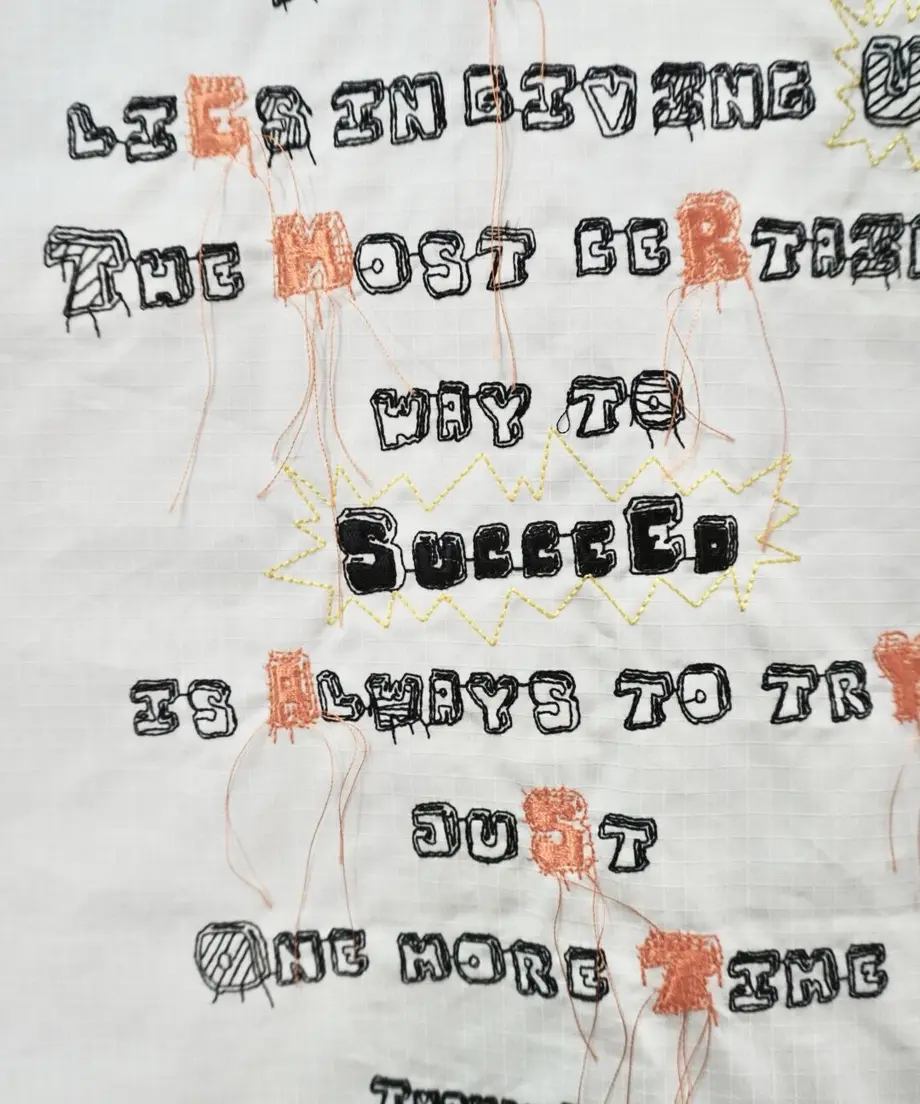 LIES IN GIVING U
THE MOST CERTAIN
WAY TO
SUCCEED
IS ALWAYS TO TRY
JUST
ONE MORE TIME